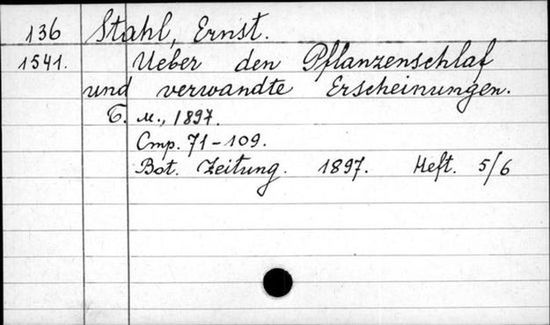 136 Stahl, Ernst.
1541. Ueber den Pflanzenschlaf
und verwandte Erscheinungen.
Т. м., 1897.
Стр. 71-109.
Bot. Zeitung. 1897. Heft. 5/6